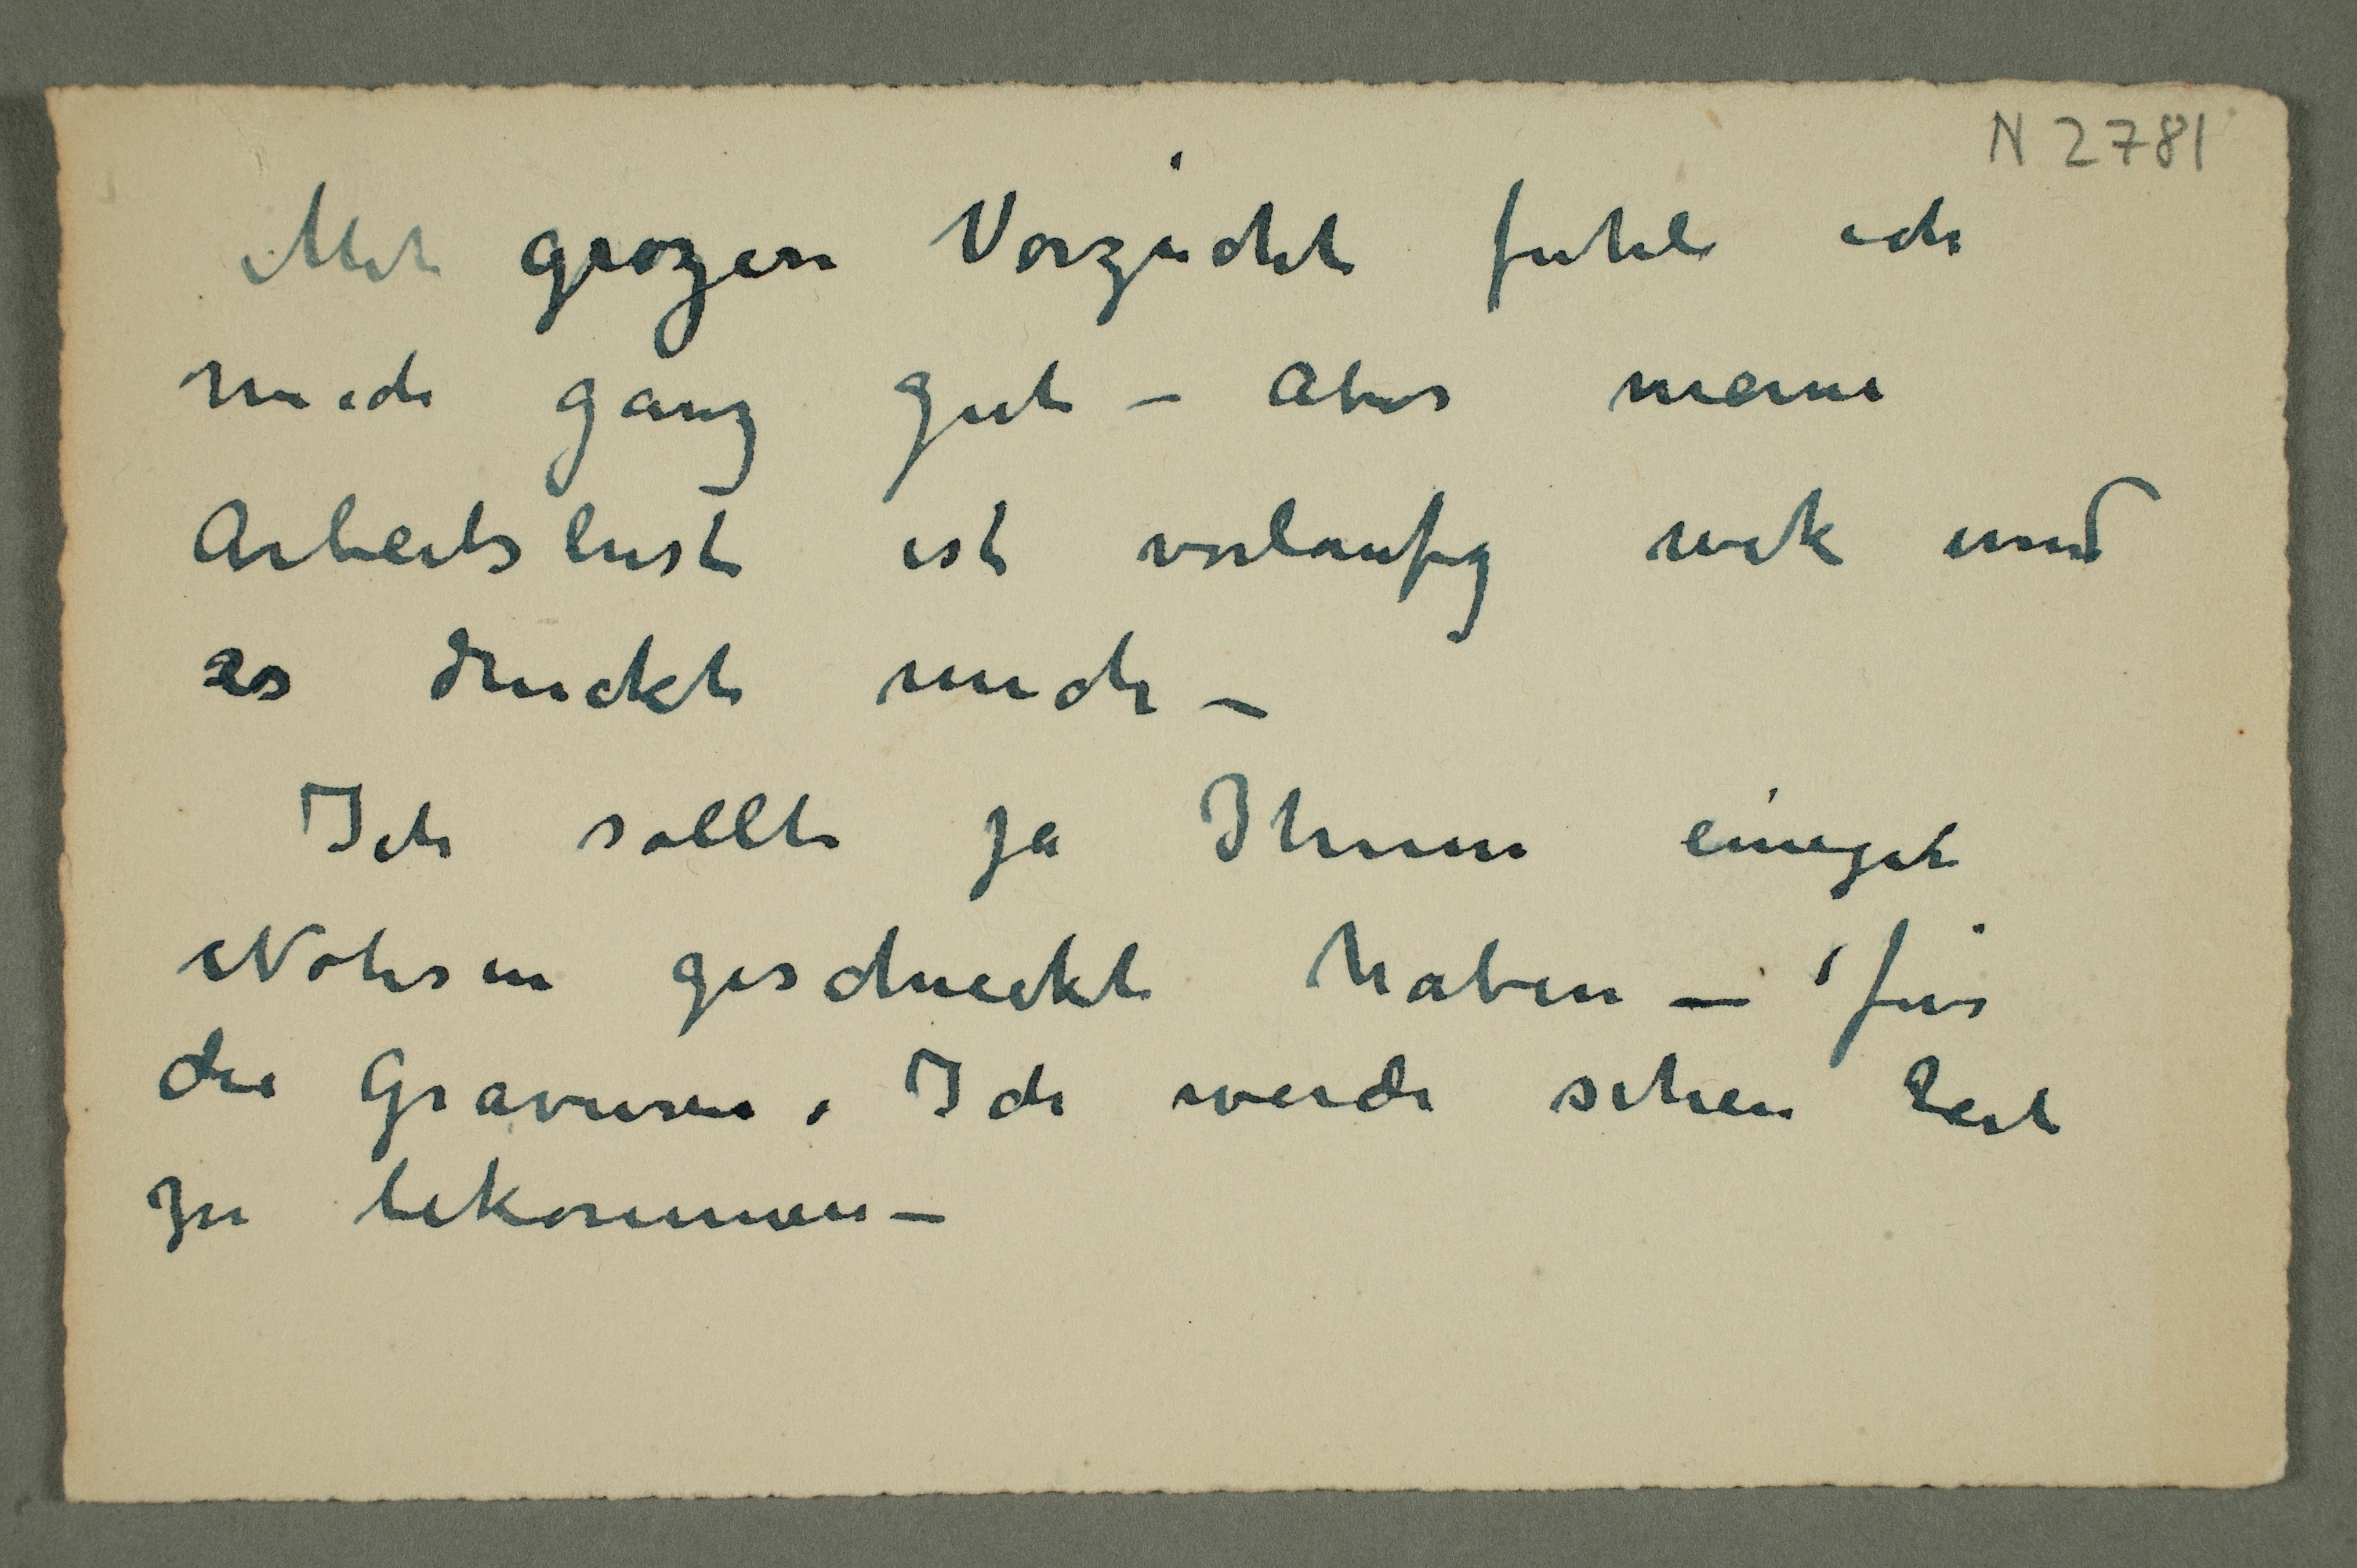 N 2781
Mit grozer Vorzicht fuhle ich
mich ganz gut – aber meine
Arbeitslust ist vorlaufig wek und
es druckt mich –
Ich sollte ja Ihnen einige
Notisen geschückt haben – für
die Gravuren. Ich werde sehen Zeit
zu bekommen –